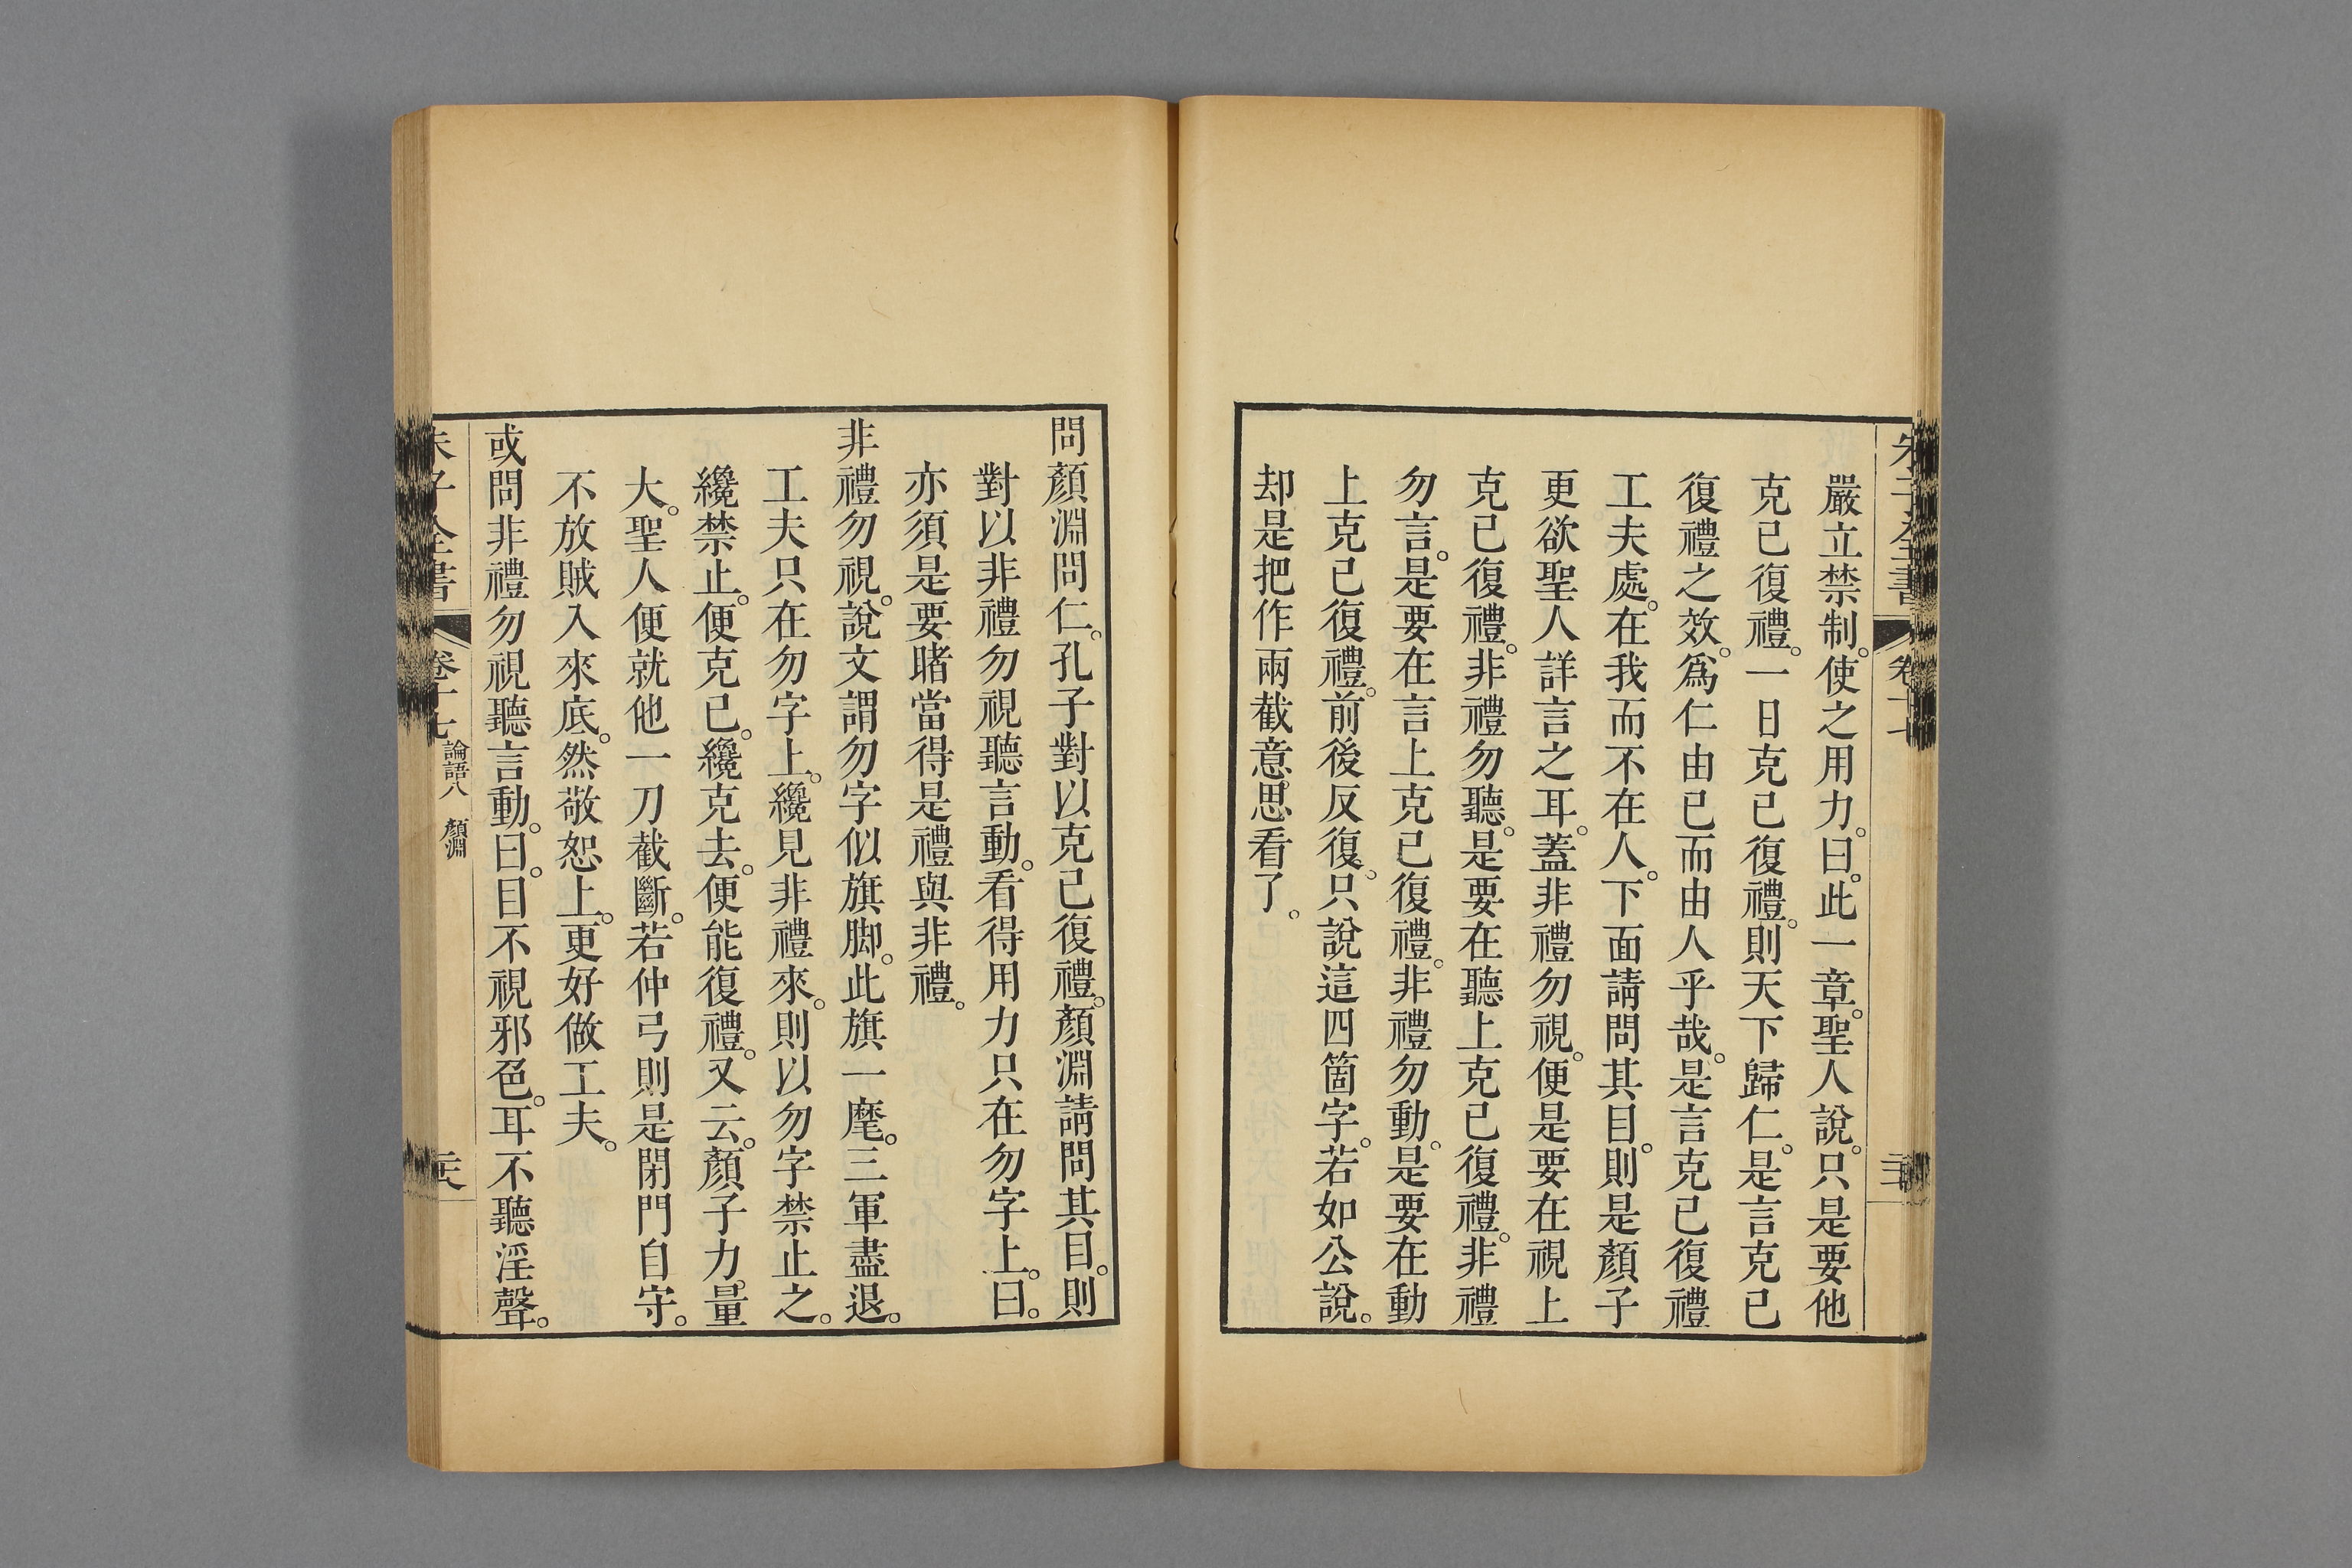 嚴立禁制。使之用力。曰。此一章。聖人說。只是要他
克己復禮。一日克己復禮。則天下歸仁。是言克己
復禮之效。爲仁由己而由人乎哉。是言克己復禮
工夫處。在我而不在人。下面請問其目。則是顏子
更欲聖人詳言之耳。蓋非禮勿視。便是要在視上
克己復禮。非禮勿聽。是要在聽上克己復禮。非禮
勿言。是要在言上克己復禮。非禮勿動。是要在動
上克己復禮。前後反復。只說這四箇字。若如公說。
却是把作兩截意思看了。
問顏淵問仁。孔子對以克己復禮。顏淵請問其目。則
對以非禮勿視聽言動。看得用力只在勿字上。曰。
亦須是要睹當得是禮與非禮。
非禮勿視。說文謂勿字似旗脚。此旗一麾。三軍盡退。
工夫只在勿字上。纔見非禮來。則以勿字禁止之。
纔禁止。便克己。纔克去。便能復禮。又云。顏子力量
大。聖人便就他一刀截斷。若仲弓則是閉門自守。
不放賊入來底。然敬恕上。更好做工夫。
或問非禮勿視聽言動。曰。目不視邪色。耳不聽淫聲。
朱子全書 卷十七 論語八 顏淵